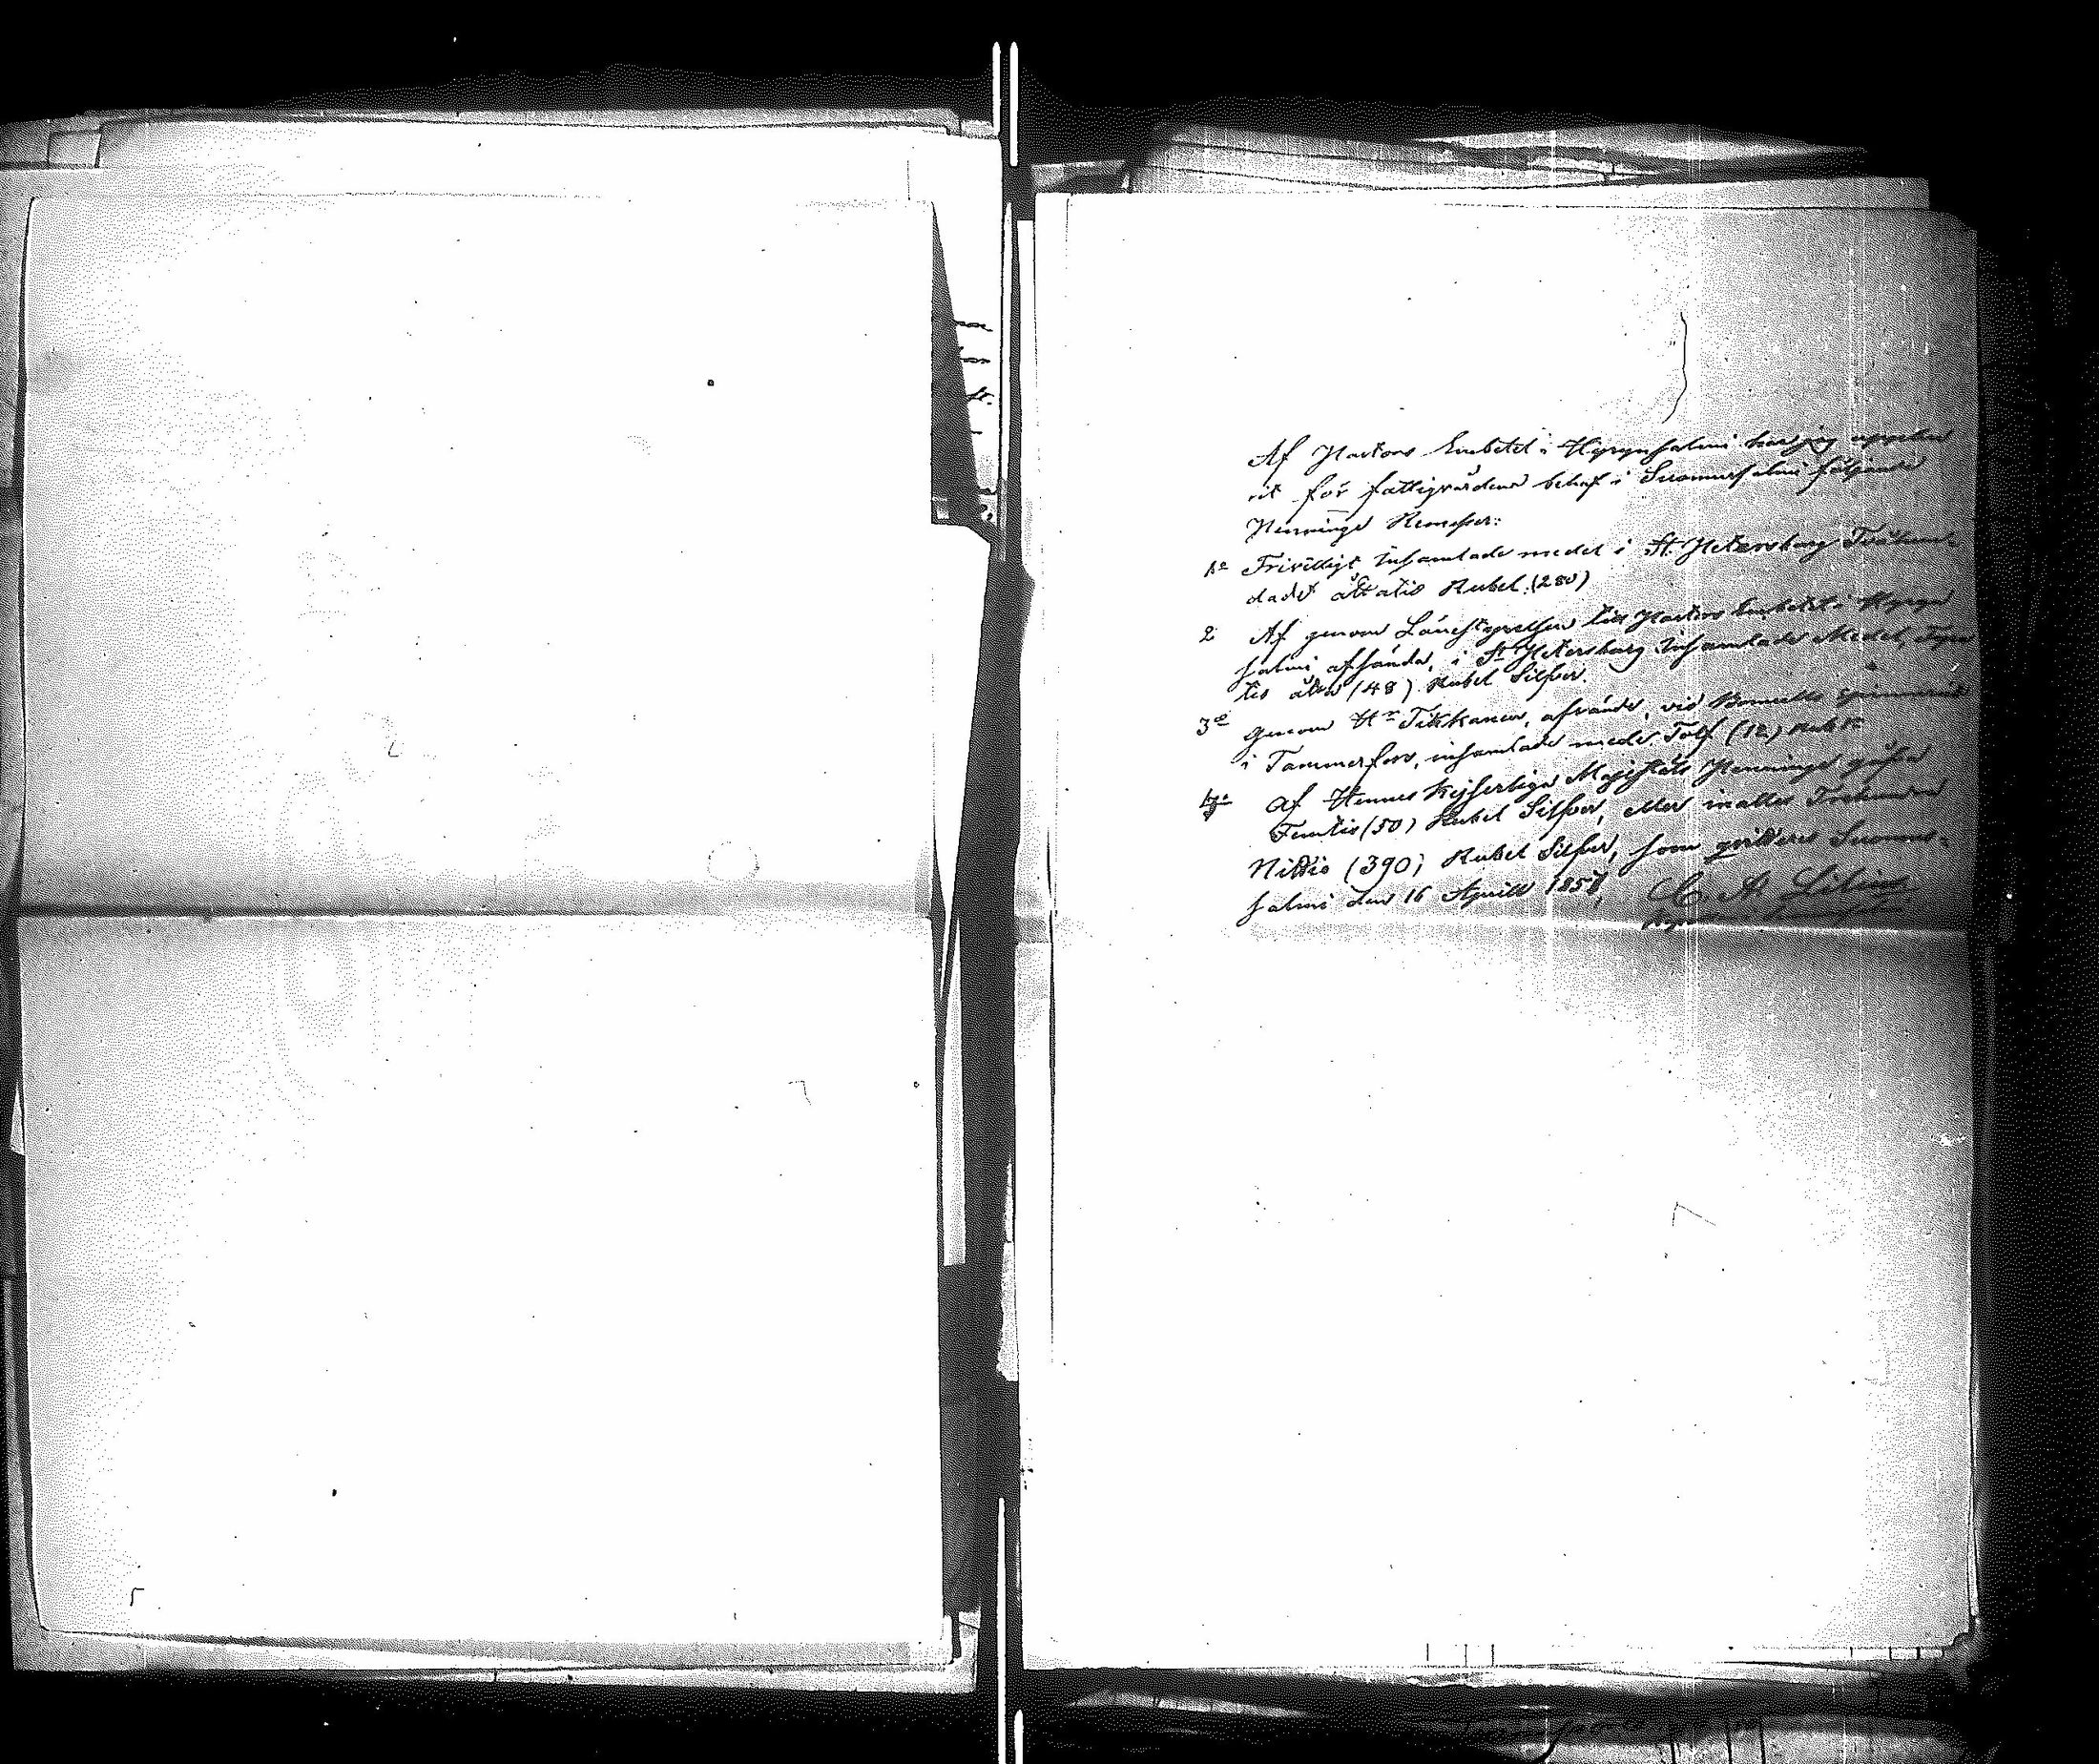 Af Pastors Embetet i Hyrynsalmi har jag uppebu
rit för fattigvårdens behof i Suomussalmi följande
Pennings Remesser:
1o Frivilligt Insamlade medel i St. Petersburg Tvåhun-
dade åttatio Rubel (280)
2 Af genom Länestyrelsen till Pastors Embetet i Hyryn
salmi afsända, i St Petersburg Insamlade Medel, Fyra
tio åtta (48) Rubel Silfver.
3o genom Hr Tikkanen, afsände, vid Bomulls spinneriet
i Tammerfors, insamlade medel Tolf (12) Rub
4o af Hennes Kejserliga Majestäts Pennings gåfva
Femtio (50) Rubel Silfver, eller inalles Trehundra
Nittio (390) Rubel Silfver, som qvitteras Suomus-
salmi den 16 Aprill 1858,
C. A. Lilius